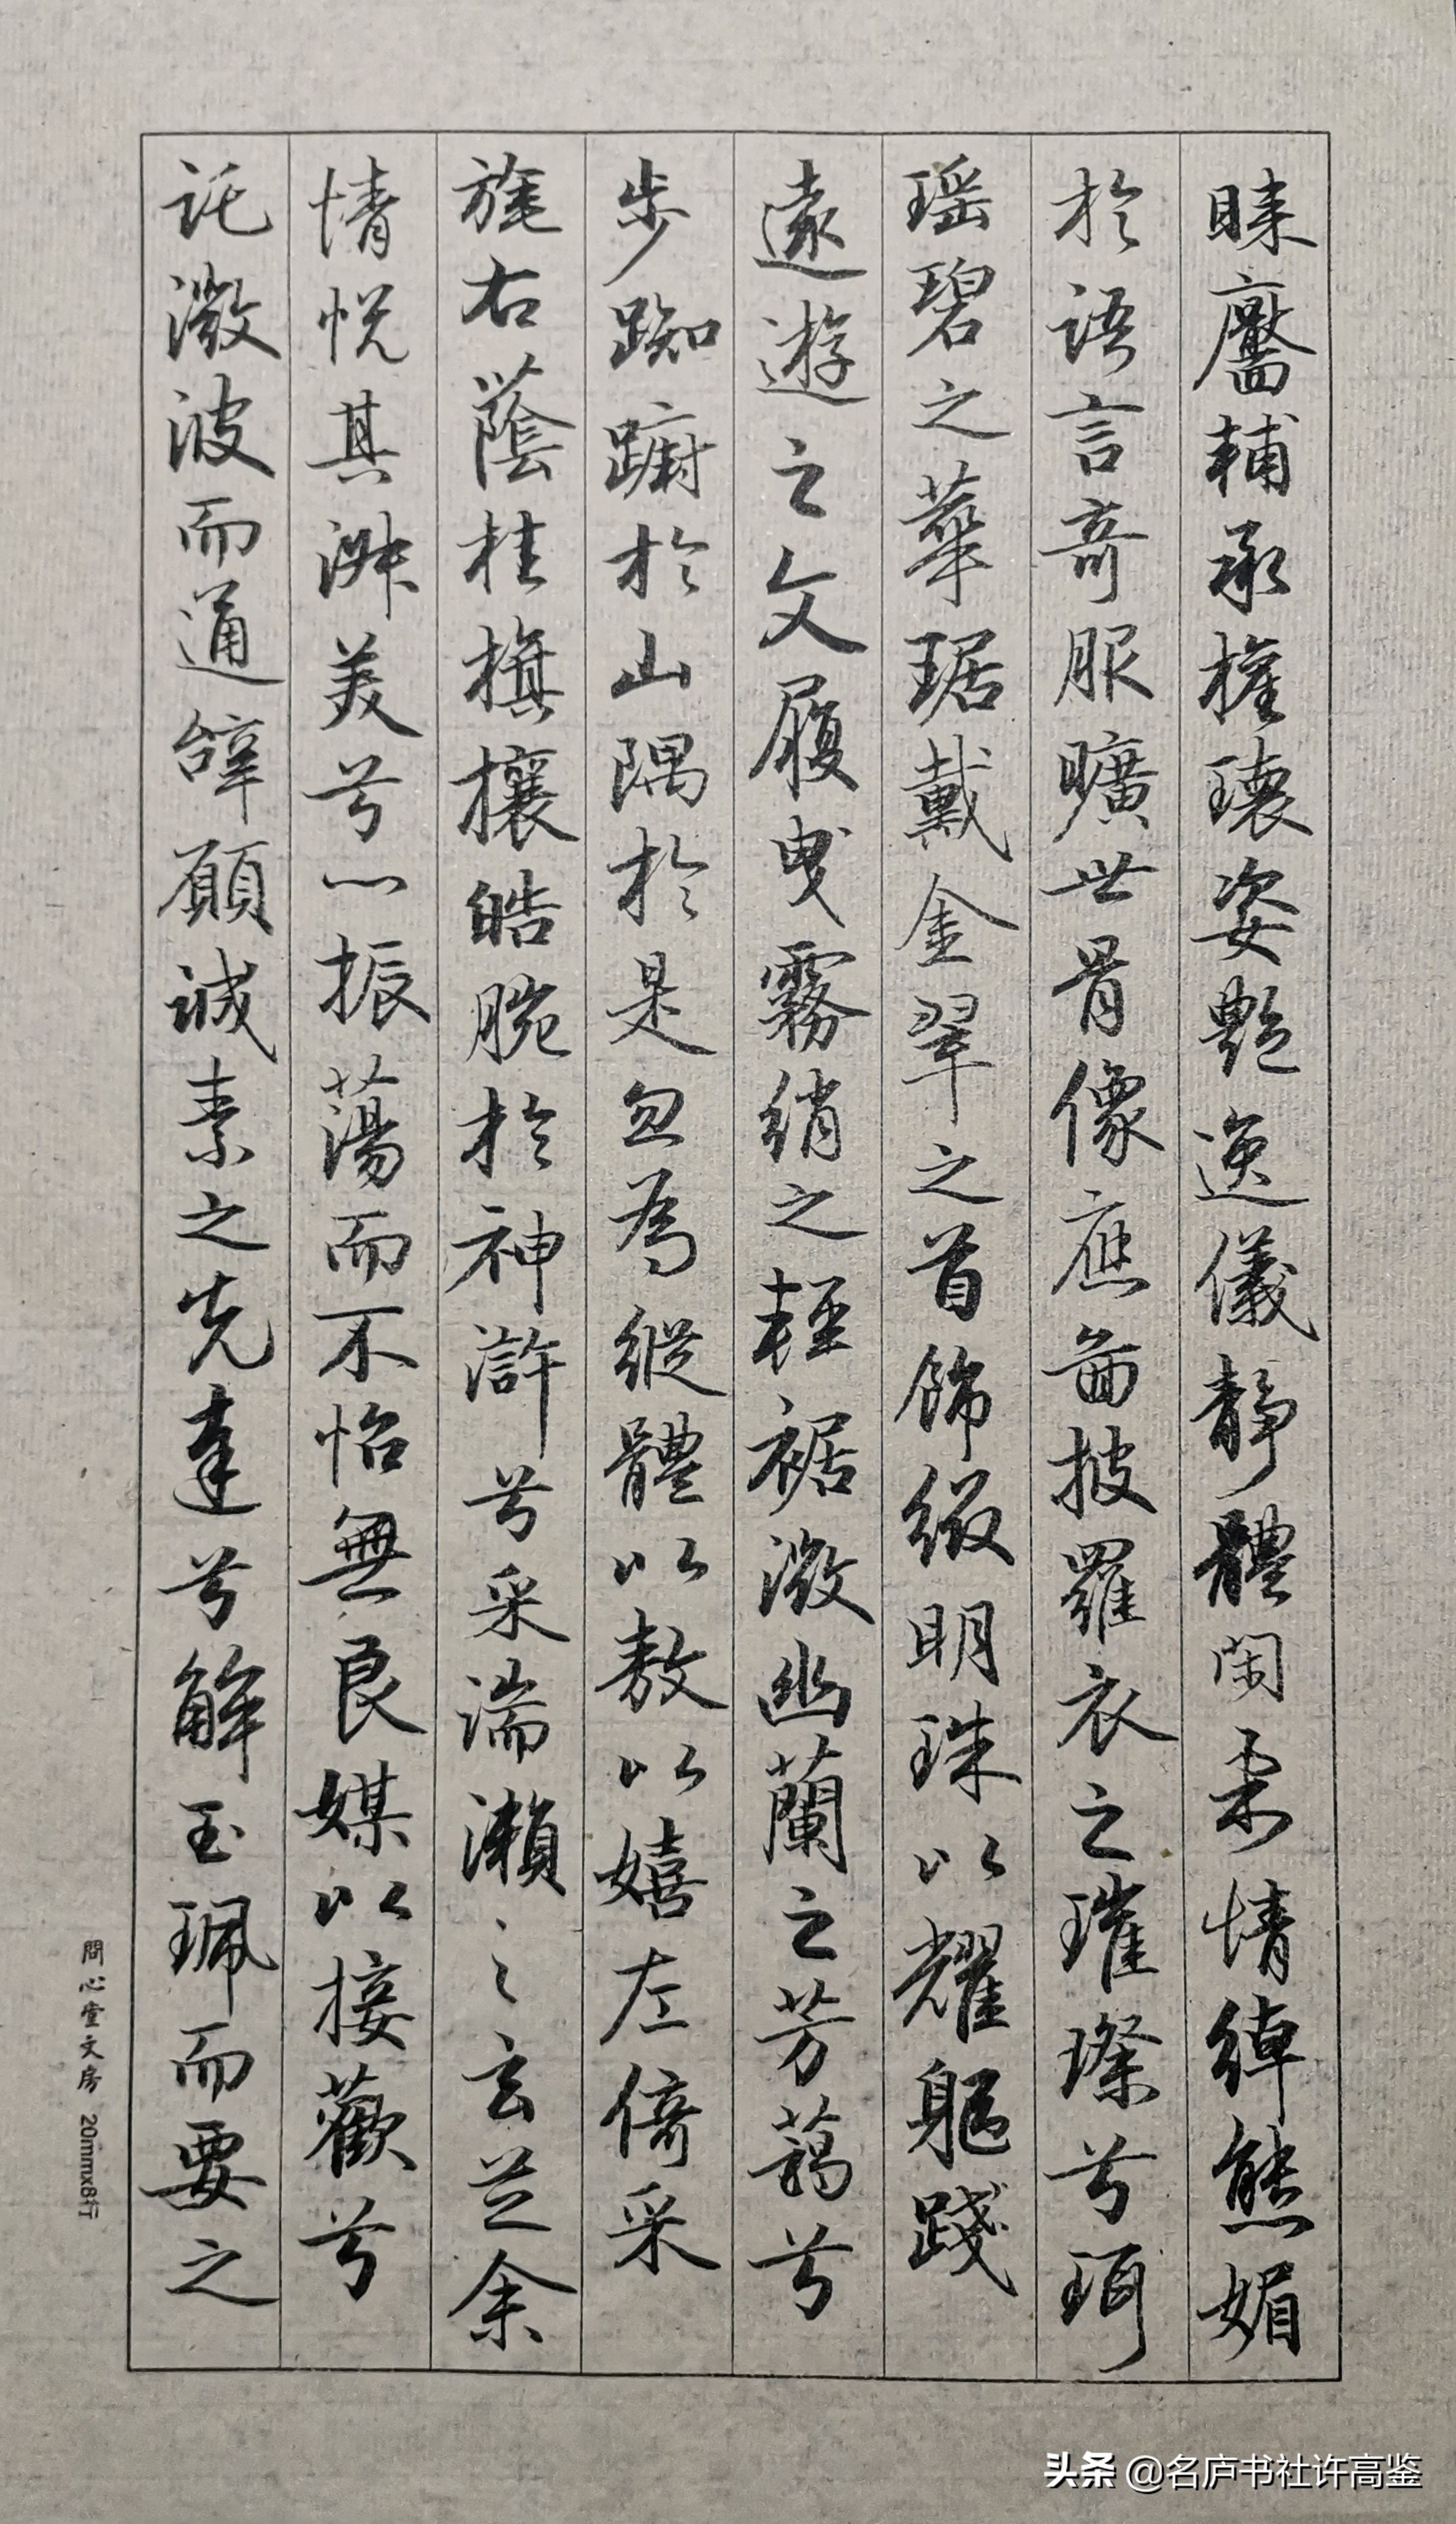 睞靨輔承權瓌姿艶逸儀靜體閑柔情綽態媚
於語言奇服曠世骨像應啚披羅衣之璀璨兮珥
瑶碧之華琚戴金翠之首飾綴明珠以耀軀踐
遠遊之文履曳霧綃之輕裾微幽蘭之芳藹兮
步踟躕於山隅於是忽爲縱體以敖以嬉左倚采
旄右蔭桂旗攘皓腕於神滸兮采湍瀨之玄芝余
情悅其淑美兮心振蕩而不怡無良媒以接歡兮
託微波而通辭願誠素之先達兮解玉珮而要之
問心堂文房 20mmx8行
头条 @名庐书社许高鉴